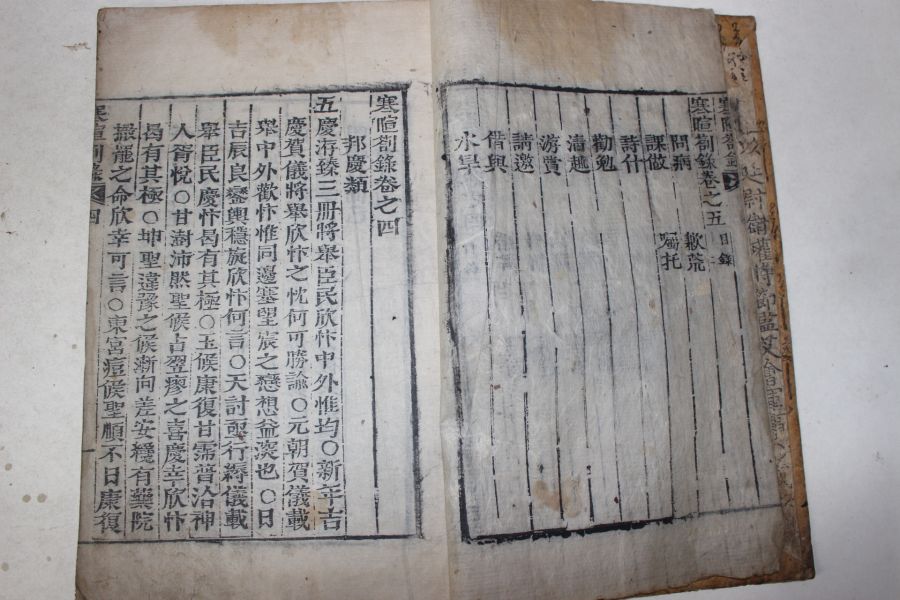 寒暄劄錄卷之五 目錄
問病 歉荒
課做 囑托
詩什
勸勉
濤越
游賞
請邀
借與
水旱
寒暄劄錄卷之四
邦慶類
五慶洊臻三冊將舉臣民欣忭中外惟均○新年吉
慶賀儀將舉欣忭之忱何可勝諭○元朝賀儀載
舉中外歡忭惟同邊塞望宸之戀想益深也○日
吉辰良鑾輿穩旋欣忭何言○天討亟行縟儀載
舉臣民慶忭曷有其極○玉候康復甘霈普洽神
人胥悅○甘澍沛然聖候占翌瘳之喜慶幸欣忭
曷有其極○坤聖違豫之候漸向差安纔有藥院
撤罷之命欣幸可言○東宮痘候聖順不日康復